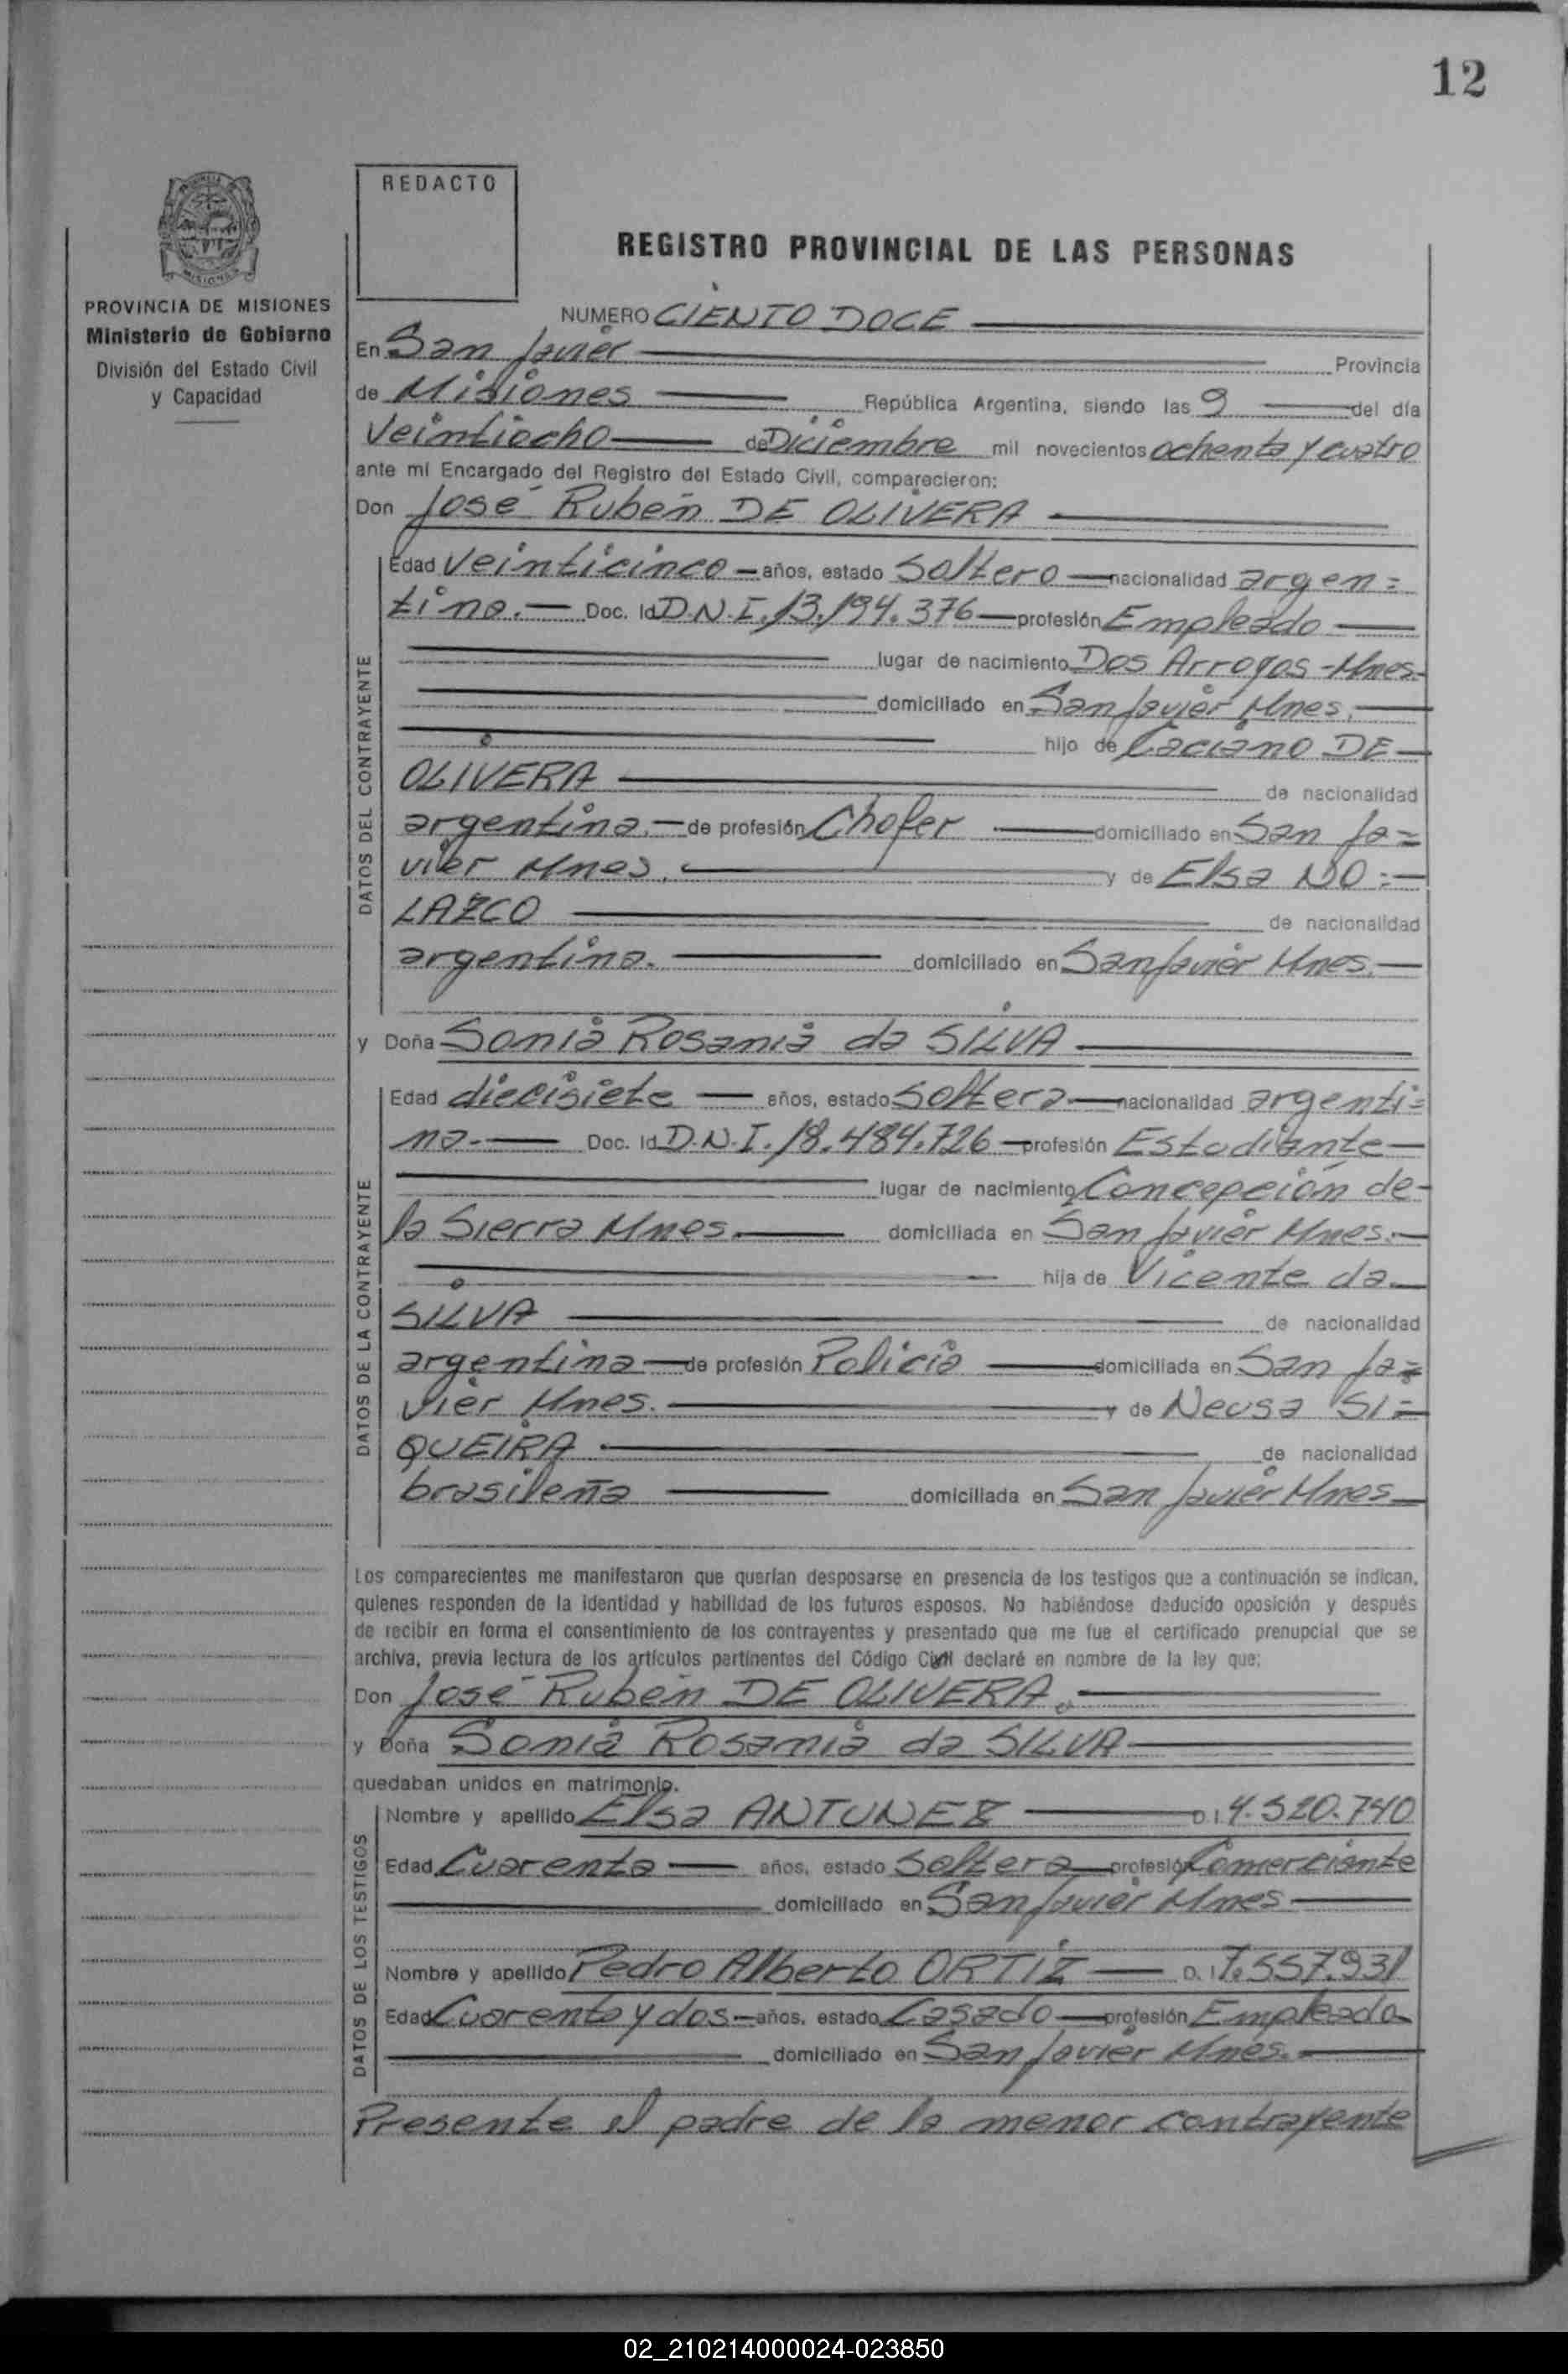 12
REDACTO
REGISTRO PROVINCIAL DE LAS PERSONAS
PROVINCIA DE MISIONES
Ministerio de Gobierno
División del Estado Civil
y Capacidad
NUMERO CIENTO DOCE
En San Javier Provincia
de Misiones República Argentina, siendo las 9 del día
Veintiocho de Diciembre mil novecientos ochenta y cuatro
ante mí Encargado del Registro del Estado Civil, comparecieron:
Don José Rubén DE OLIVERA
DATOS DEL CONTRAYENTE
Edad Veinticinco años, estado Soltero nacionalidad argen=
tina. Doc. Id D.N.I. 13.194.376 profesión Empleado
lugar de nacimiento Dos Arroyos - Mnes.
domiciliado en San Javier Mnes.
hijo de Caciano DE
OLIVERA de nacionalidad
argentina. de profesión Chofer domiciliado en San Ja=
vier Mnes. y de Elsa NO=
LAZCO de nacionalidad
argentina. domiciliado en San Javier Mnes.
y Doña Sonia Rosania da SILVA
DATOS DE LA CONTRAYENTE
Edad diecisiete años, estado Soltera nacionalidad argenti=
na. Doc. Id D.N.I. 18.484.726 profesión Estudiante
lugar de nacimiento Concepción de
la Sierra Mnes. domiciliada en San Javier Mnes.
hija de Vicente da
SILVA de nacionalidad
argentina de profesión Policía domiciliada en San Ja=
vier Mnes. y de Neusa SI=
QUEIRA de nacionalidad
brasileña domiciliada en San Javier Mnes
Los comparecientes me manifestaron que querían desposarse en presencia de los testigos que a continuación se indican,
quienes responden de la identidad y habilidad de los futuros esposos. No habiéndose deducido oposición y después
de recibir en forma el consentimiento de los contrayentes y presentado que me fue el certificado prenupcial que se
archiva, previa lectura de los artículos pertinentes del Código Civil declaré en nombre de la ley que:
Don José Rubén DE OLIVERA.
y Doña Sonia Rosania da SILVA
quedaban unidos en matrimonio.
DATOS DE LOS TESTIGOS
Nombre y apellido Elsa ANTUNEZ D.I. 4.520.740
Edad Cuarenta años, estado Soltera profesión Comerciante
domiciliado en San Javier Mnes
Nombre y apellido Pedro Alberto ORTIZ D.I. 7.557.931
Edad Cuarenta y dos años, estado Casado profesión Empleado
domiciliado en San Javier Mnes.
Presente el padre de la menor contrayente
02_210214000024-023850